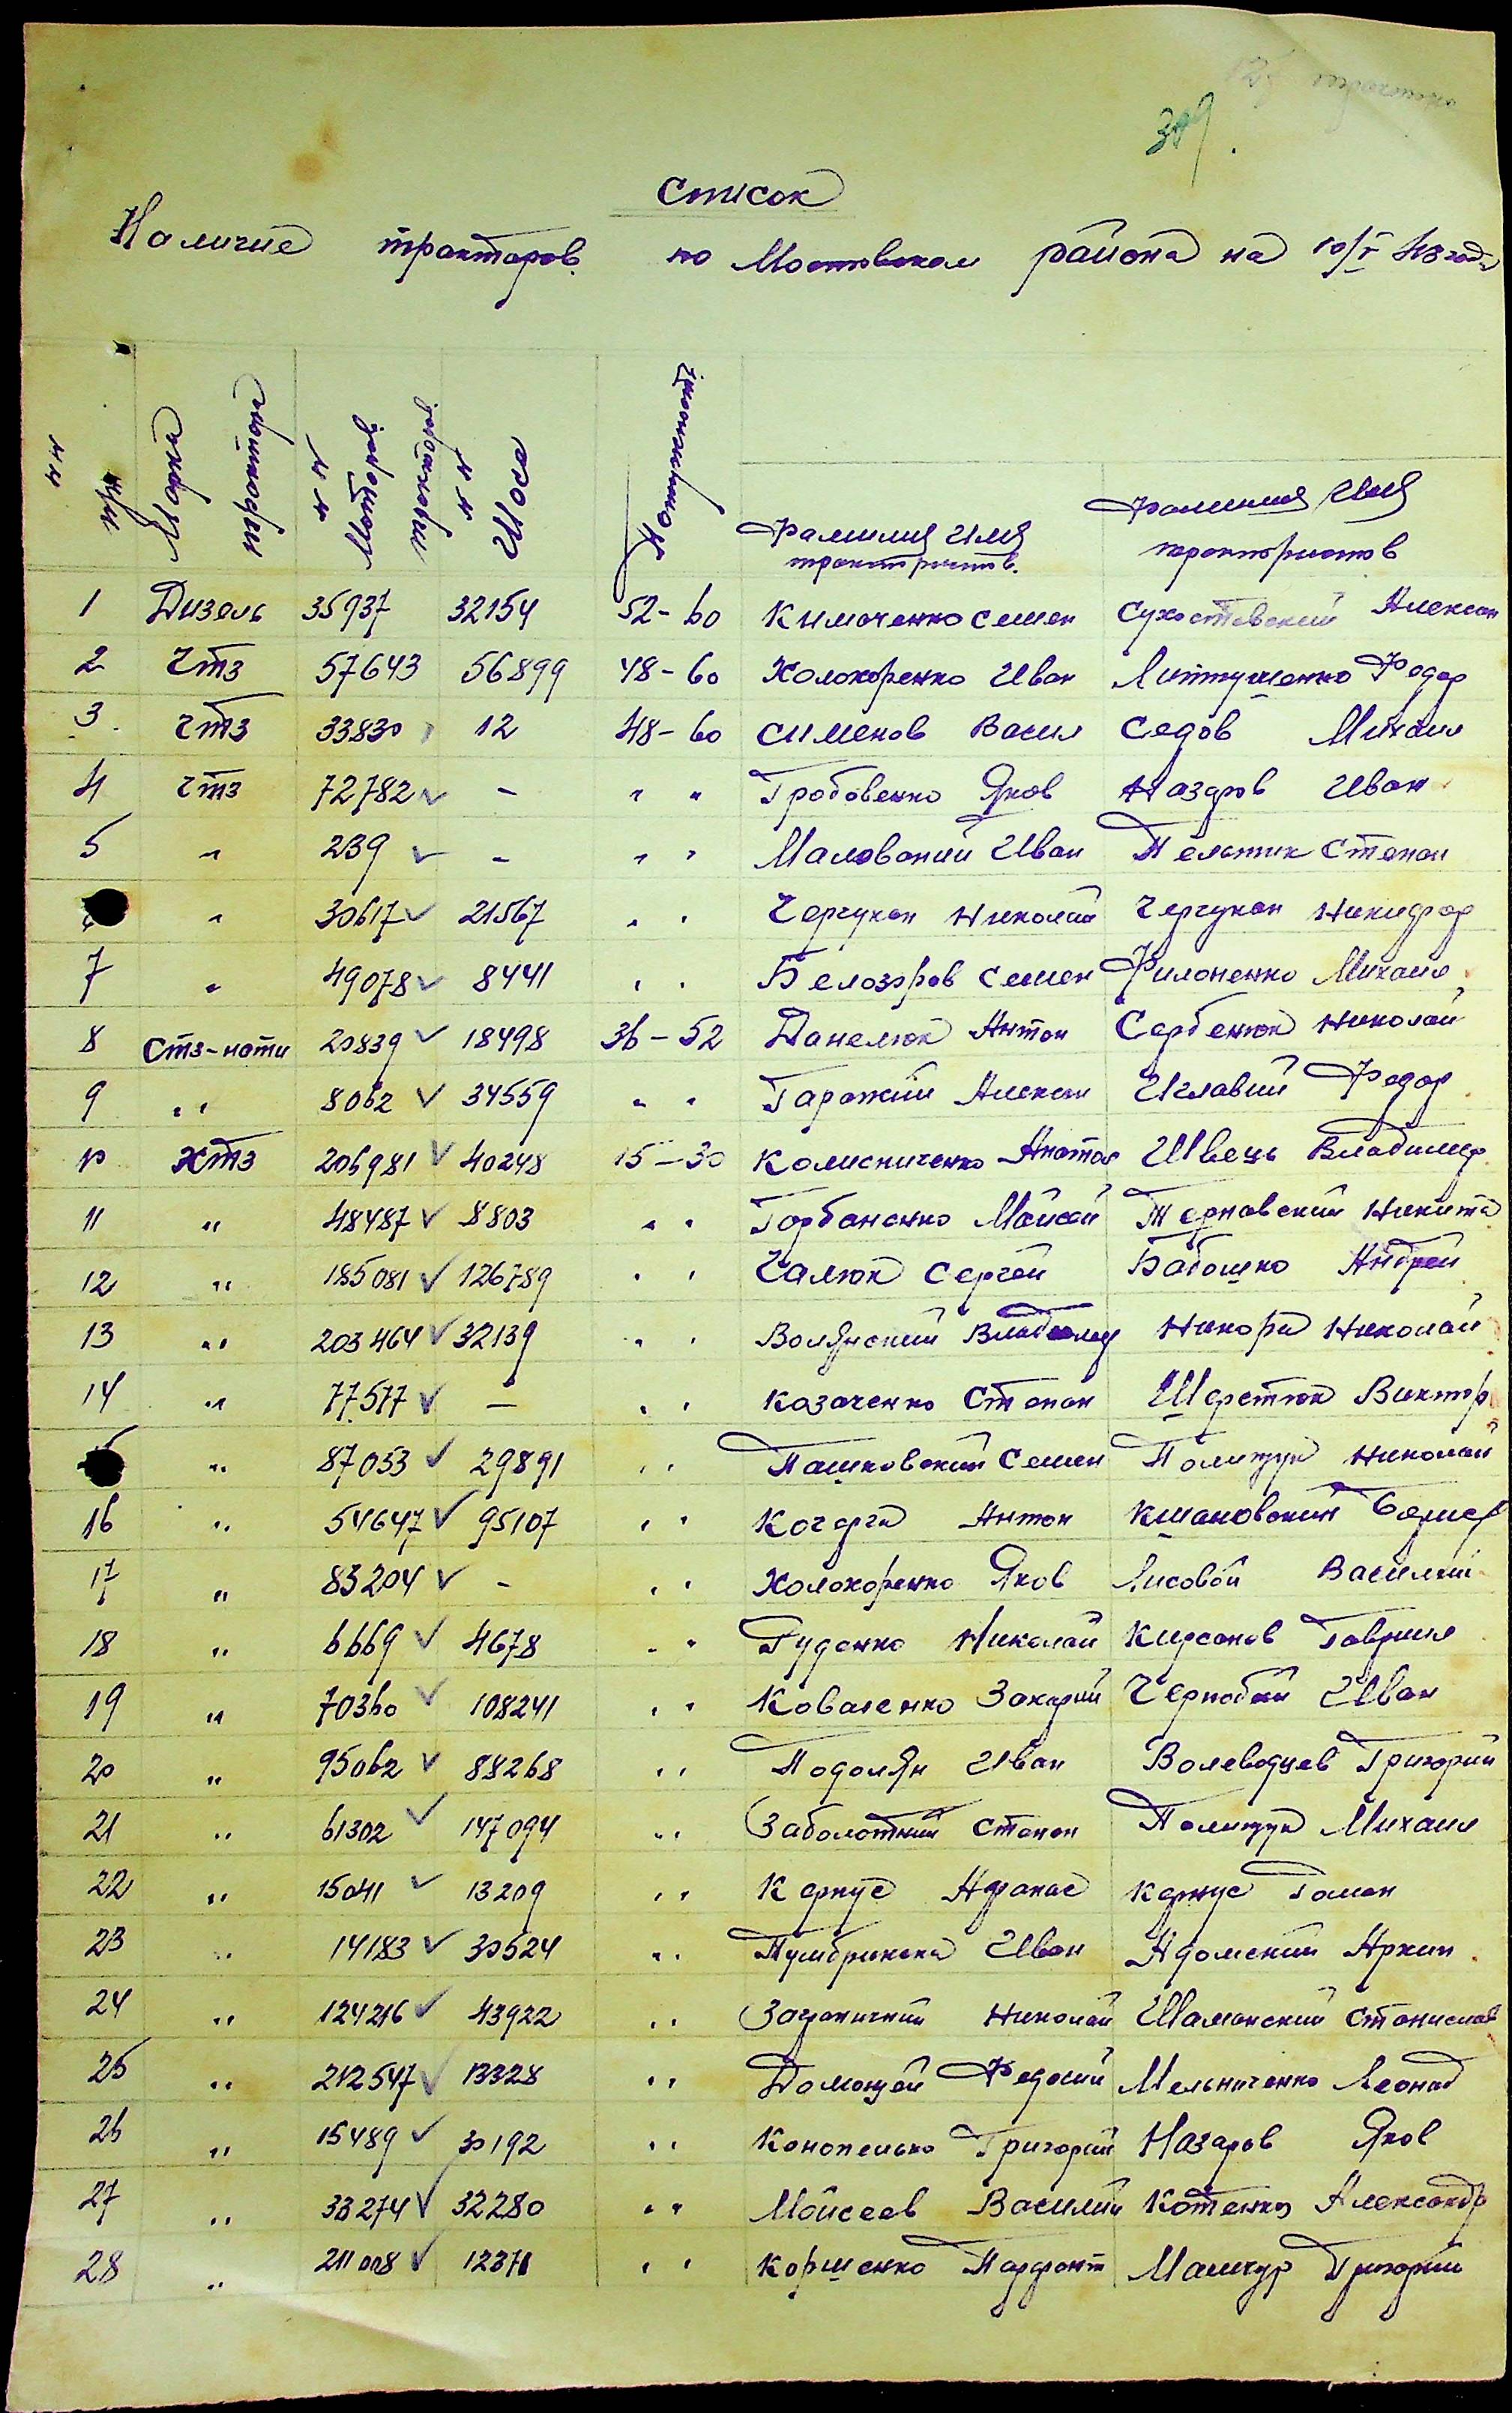 319.
Список
Наличие тракторов по Мостовском района на 10/V 43 года
№№ п/п Марка тракторов №№ моторов тракторов №№ Шоси
Фамилия Имя трактористов. Фамилия Имя трактористов
1 Дизель 35937 32154 52-60 Кимоченко Семен Сухоставский Алексан
2 Чтз 57643 56899 48-60 Холокоренко Иван Литтушенко Федор
3 Чтз 33830 12 48-60 Сименов Васил Седов Михаил
4 Чтз 72782 - " " Гробовенко Яков Наздров Иван
5 " 239 - " " Маловоний Иван Пельтик Степан
6 " 30617 21567 " " Чергукан Николай Чергукан Никифор
7 " 49078 8441 " " Белозоров Семен Филоненко Михаил
8 Стз-нати 20839 18498 36-52 Данелюк Антон Сербенюк Николай
9 " " 8062 34559 " " Гарожий Алексан Иглавий Федор
10 Хтз 206981 40248 15-30 Колисниченко Анатол Швець Владимир
11 " 48487 8803 " " Горбаненко Мойсей Терновский Никита
12 " 185081 126789 " " Чалюк Сергей Бабошко Андрей
13 " 203464 32139 " " Волянский Владимир Никора Николай
14 " 77577 - " " Казаченко Степан Шерстюк Виктор
15 " 87053 29891 " " Пашковский Семен Полищук Николай
16 " 54647 95107 " " Кочерга Антон Кшановский
17 " 83204 - " " Холокоренко Яков Лисовой Василий
18 " 6669 4678 " " Руденко Николай Кирсанов Гаврил
19 " 70360 108241 " " Коваленко Захарий Чернобай Иван
20 " 95062 88268 " " Подолян Иван Волеводцев Григорий
21 " 61302 147094 " " Заболотний Степан Полищук Михаил
22 " 15041 13209 " " Корнус Афанас Корнус Роман
23 " 14183 30524 " " Иван Адомский Архип
24 " 124216 43922 " " Заграничний Николай Шаманский Станислав
25 " 212547 13328 " " Федосий Мельниченко Леонид
26 " 15489 30192 " " Конопелько Григорий Назаров Яков
27 " 33274 32280 " " Мойсеев Василий Котенко Александр
28 " 211008 12371 " " Коршенко Парфент Мамчур Григорий